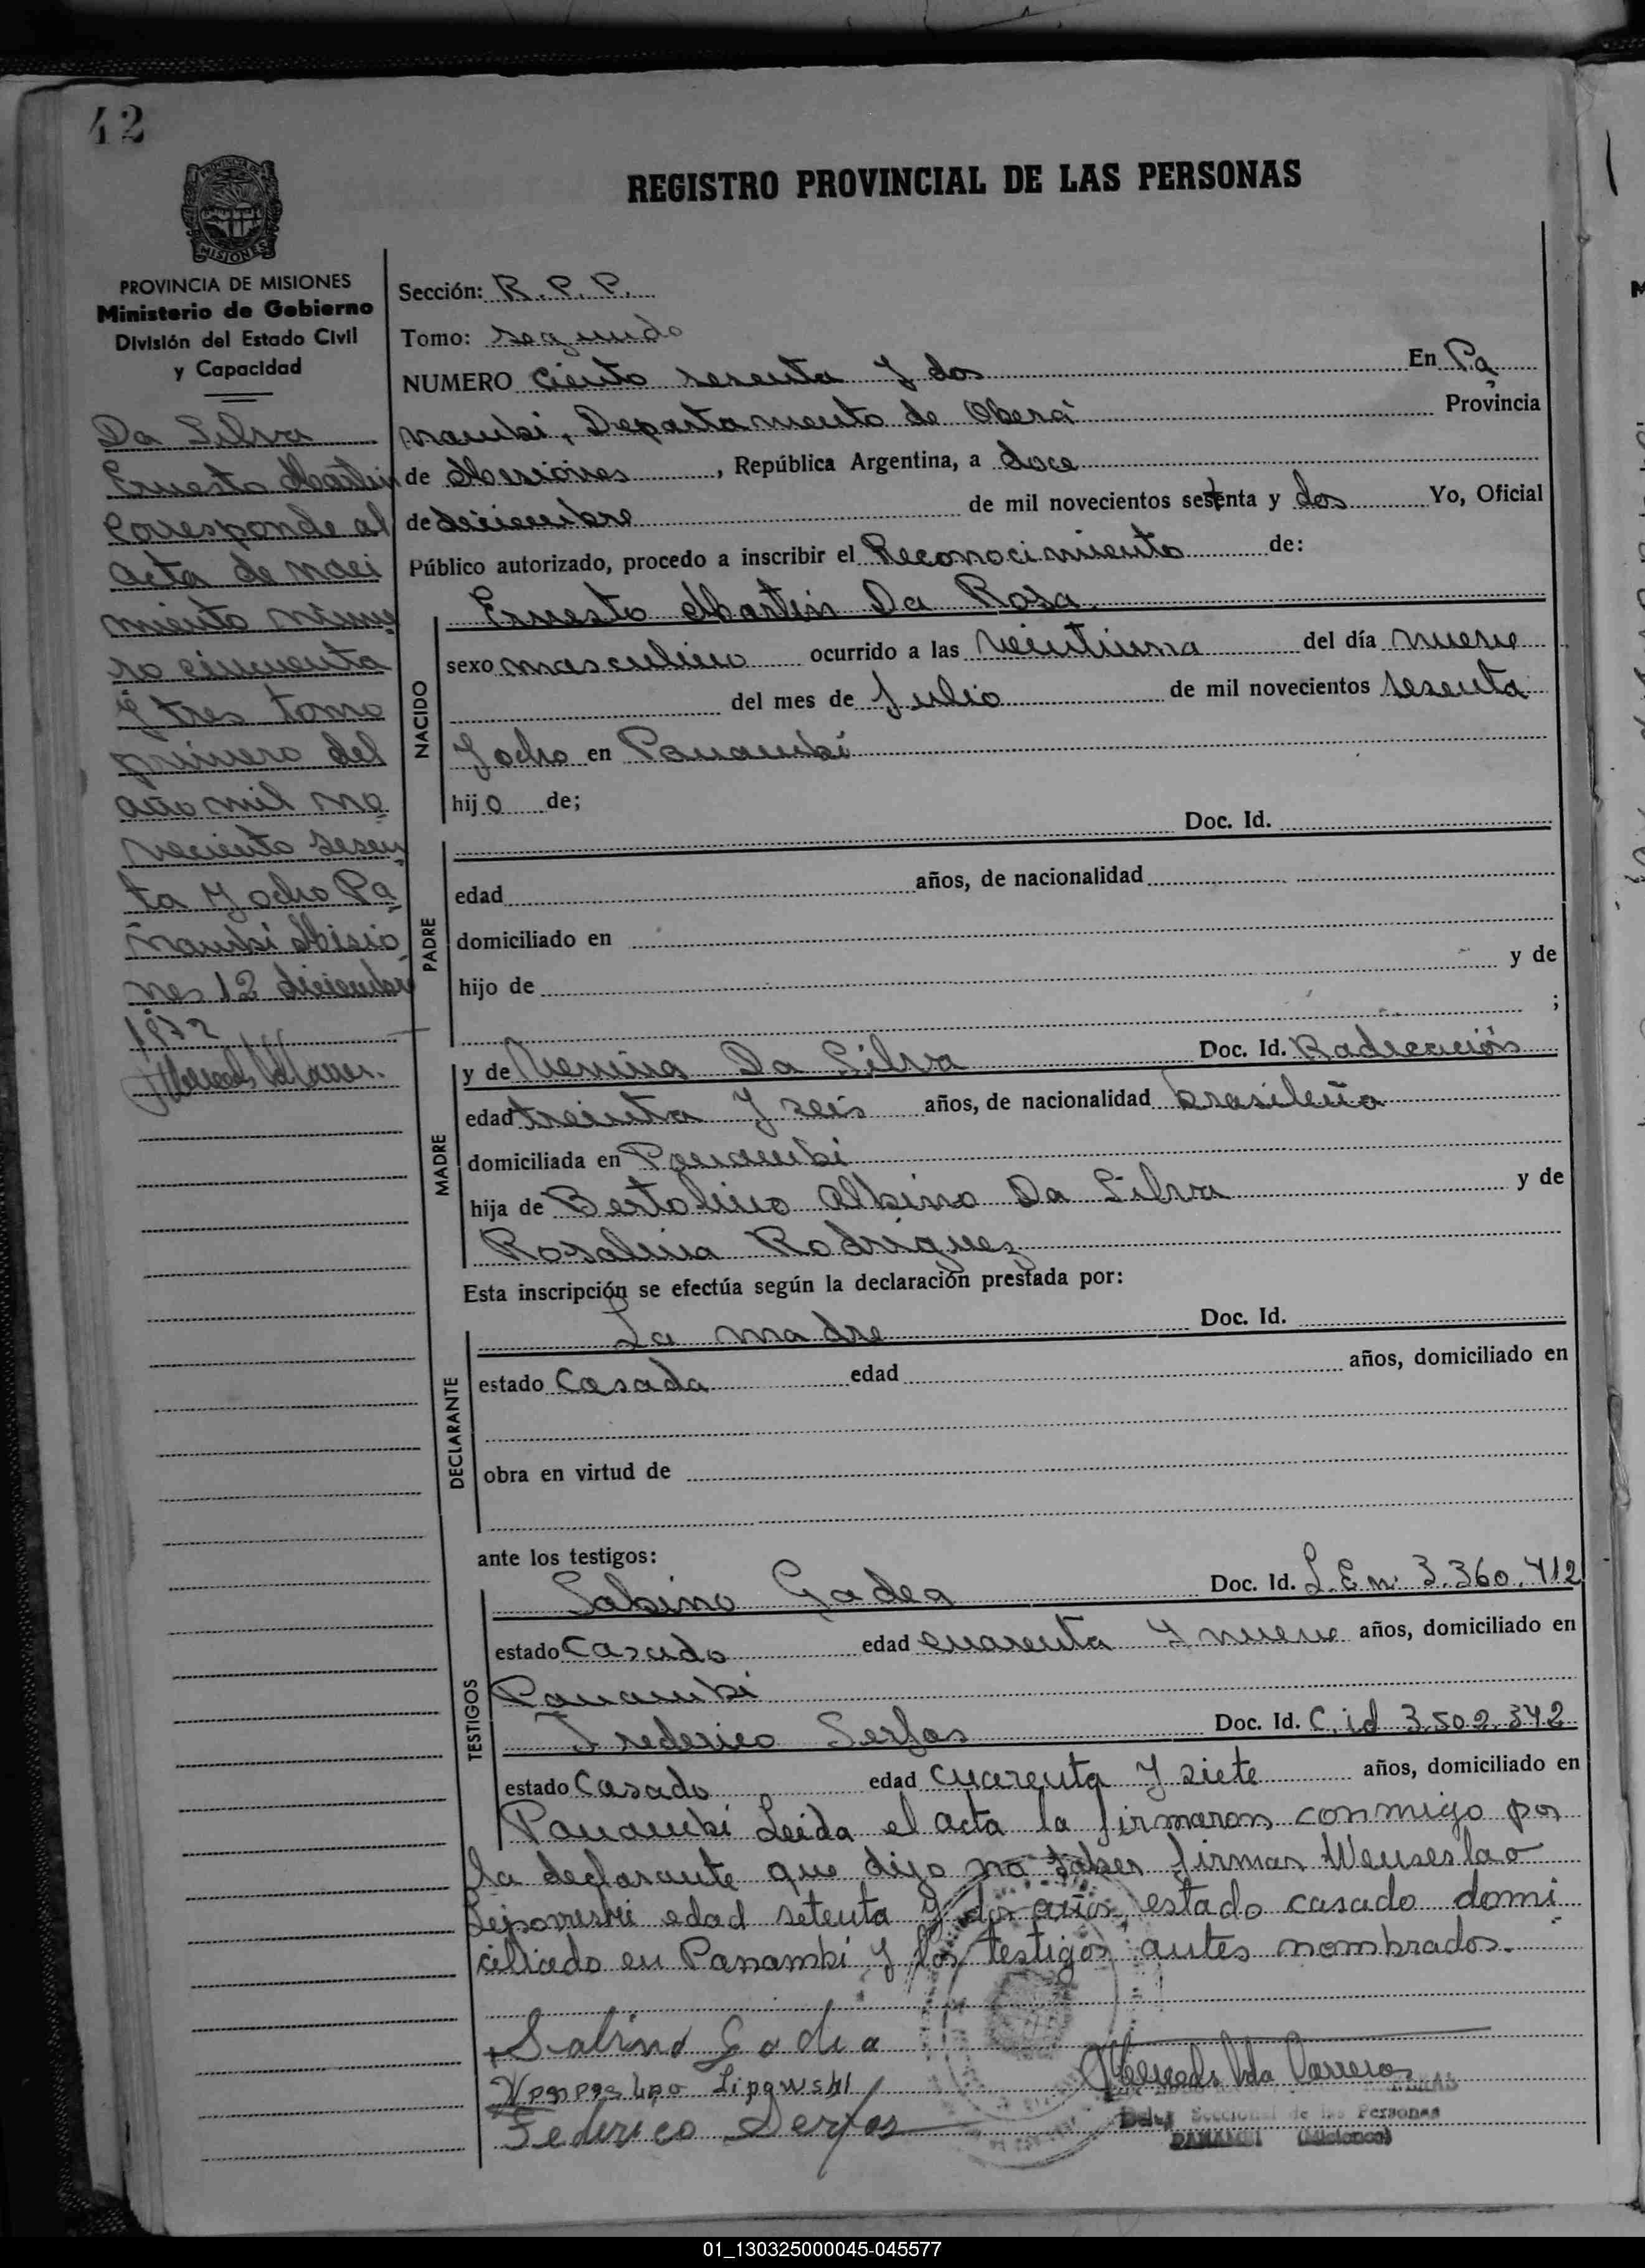 42
REGISTRO PROVINCIAL DE LAS PERSONAS
MISIONES
PROVINCIA DE MISIONES
Ministerio de Gobierno
División del Estado Civil
y Capacidad
Da Silva
Ernesto Martin
Corresponde al
acta de naci
miento nume
ro cincuenta
y tres tomo
primero del
año mil no
veciento sesen
ta y ocho Pa
nambi Misio
nes 12 diciembre
1972
Sección: R.P.P.
Tomo: segundo
NUMERO ciento sesenta y dos En Pa
nambi, Departamento de Oberá Provincia
de Misiones, República Argentina, a doce
de diciembre de mil novecientos setenta y dos Yo, Oficial
Público autorizado, procedo a inscribir el Reconocimiento de:
NACIDO
Ernesto Martin Da Rosa
sexo masculino ocurrido a las veintiuna del día nueve
del mes de Julio de mil novecientos sesenta
y ocho en Panambí
hijo de;
PADRE
Doc. Id.
edad años, de nacionalidad
domiciliado en
hijo de y de
;
MADRE
y de Da Silva Doc. Id. Radicación
edad treinta y seis años, de nacionalidad brasileña
domiciliada en Panambi
hija de Bertolino Albino Da Silva y de
Rosalina Rodriguez
Esta inscripción se efectúa según la declaración prestada por:
DECLARANTE
La madre Doc. Id.
estado Casada edad años, domiciliado en
obra en virtud de
ante los testigos:
TESTIGOS
Sabino Gadea Doc. Id. L.E.n. 3.360.412
estado Casado edad cuarenta y nueve años, domiciliado en
Panambi
Frederico Serfas Doc. Id. C.id 3.502.342
estado Casado edad cuarenta y siete años, domiciliado en
Panambi Leida el acta la firmaron conmigo por
la declarante que dijo no saber firmar Wenseslao
edad setenta y dos años, estado casado domi
ciliado en Panambi y los testigos antes nombrados.
Sabino Gadea
Federico Serfas
Seccional de las Personas
PANAMBI (Misiones)
01_130325000045-045577